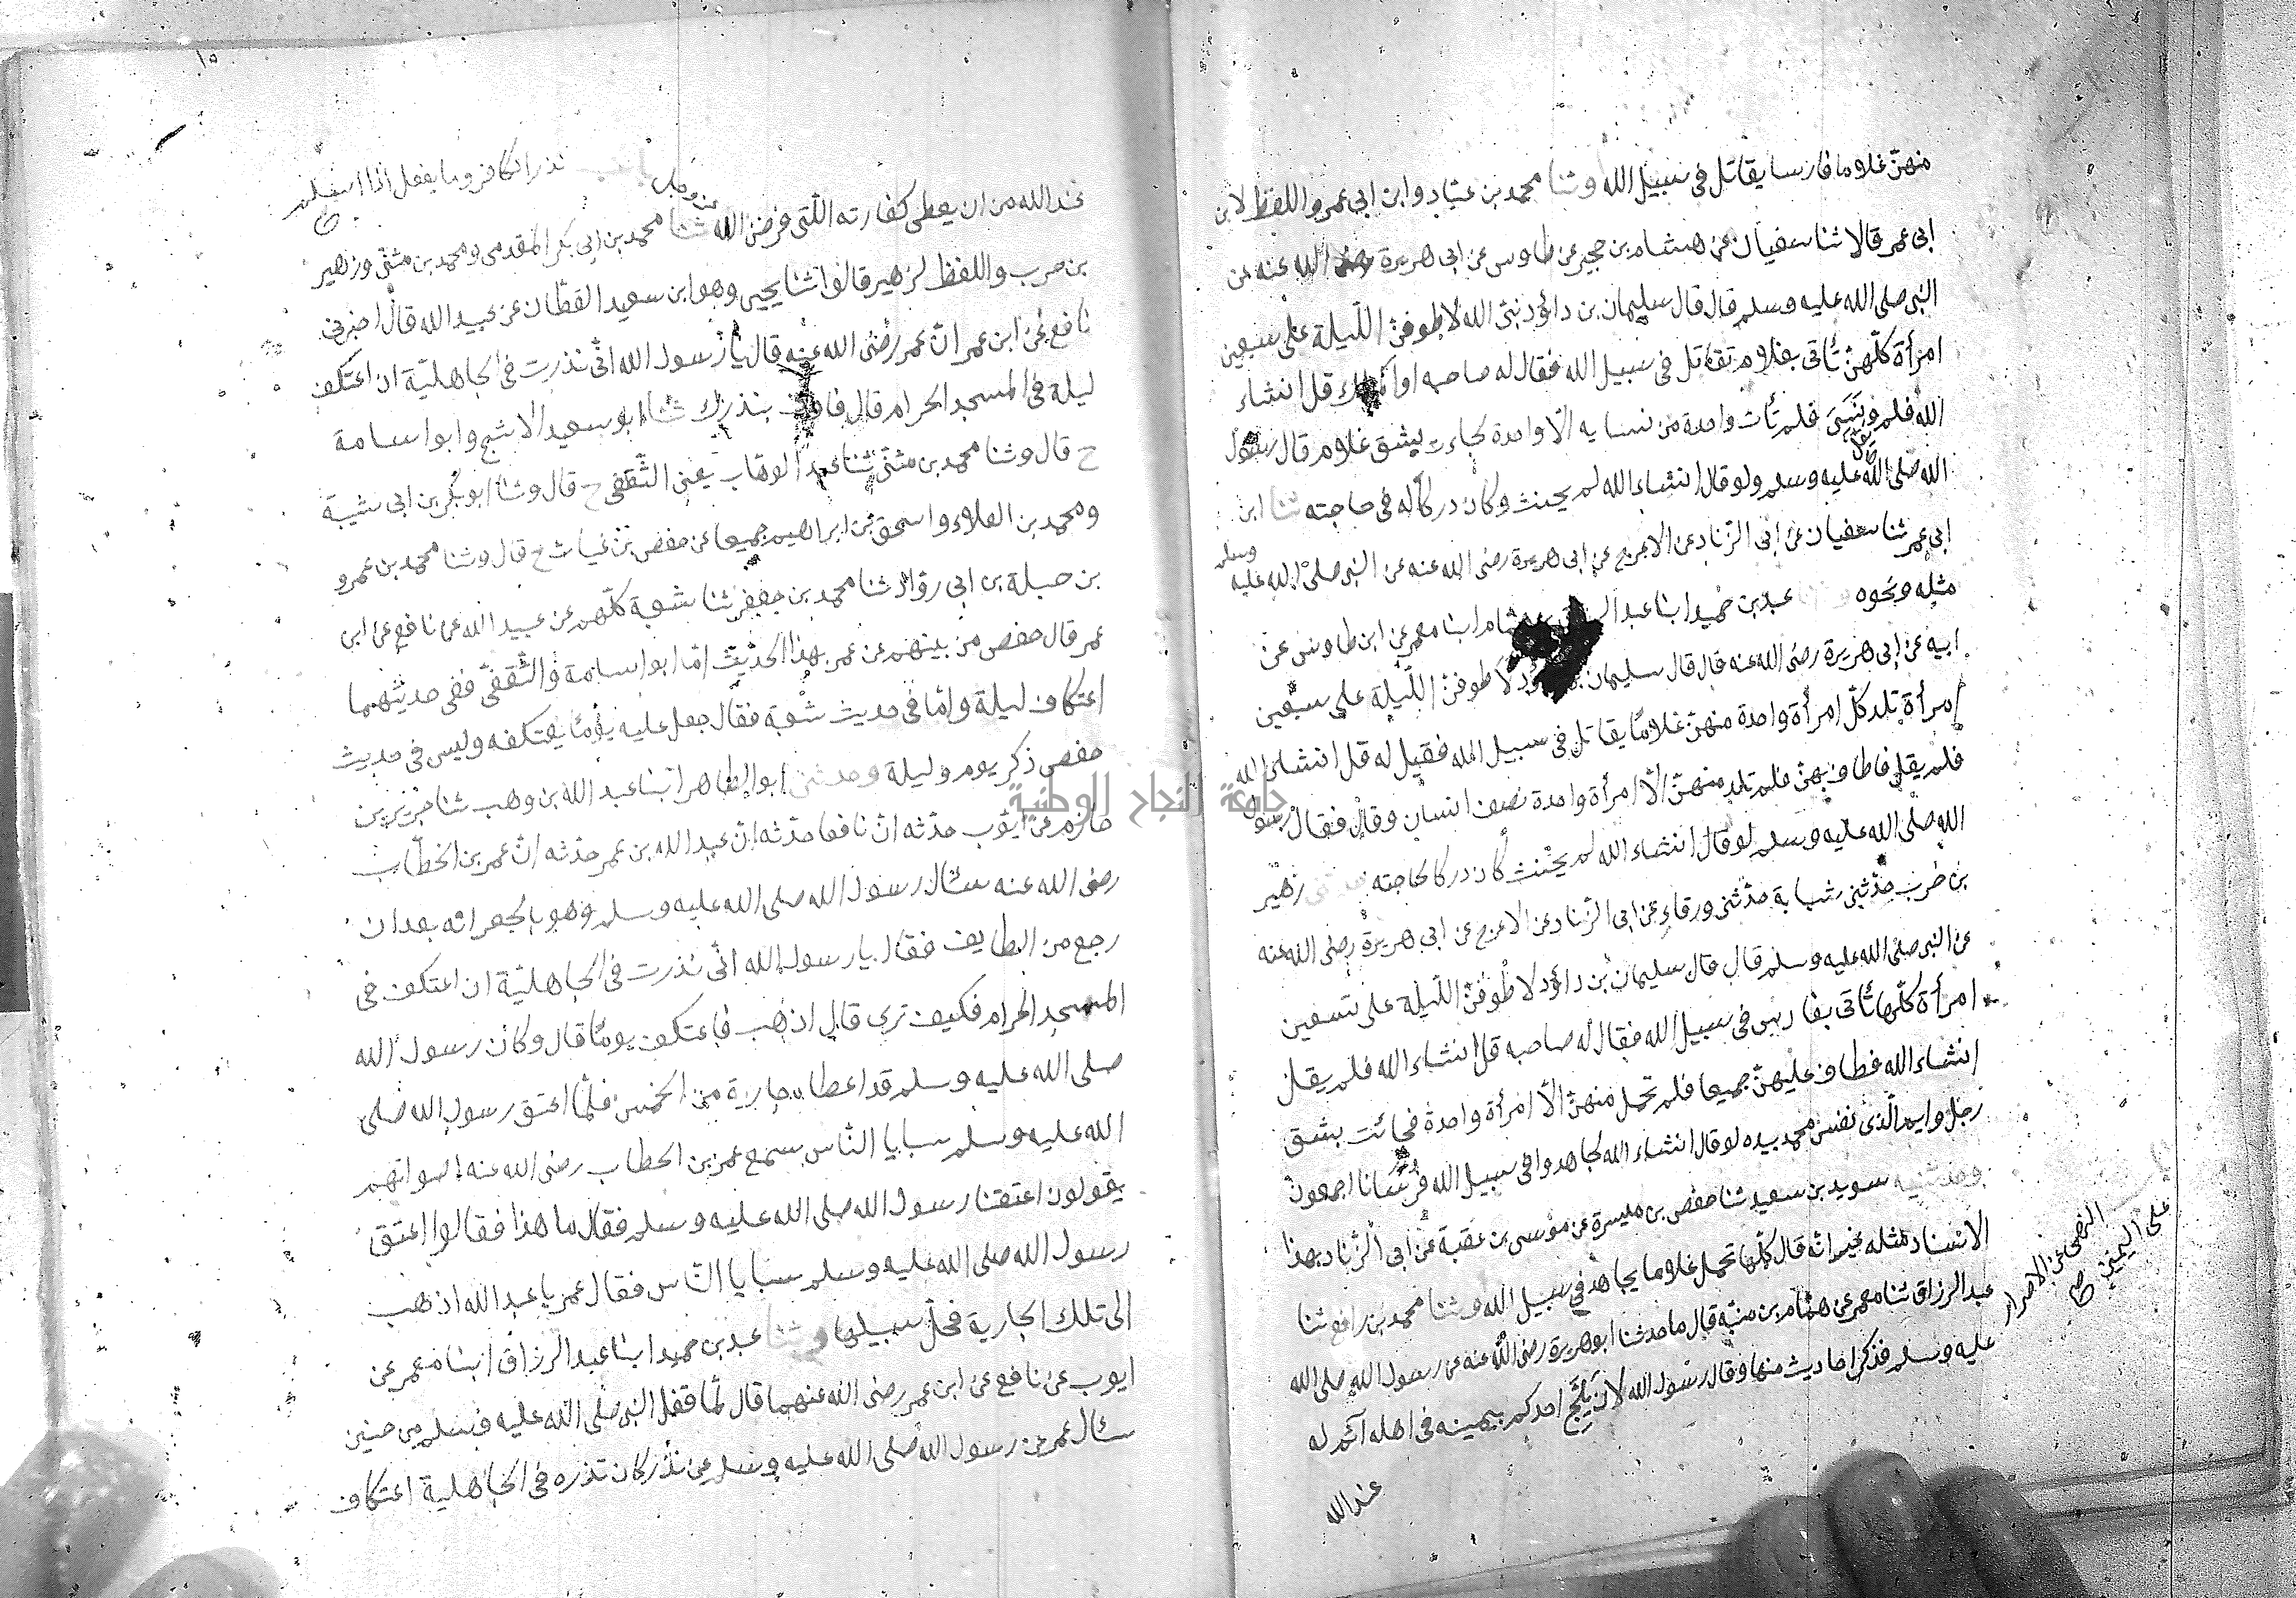 منهن غلاما فارسا يقاتل فى سبيل الله وثنا محمد بن عباد وابن ابى عمر واللفظ لابن
ابى عمر قالا ثنا سفيان عن هشام بن حجير عن طاوس عن ابى هريرة رضى الله عنه عن
النبى صلى الله عليه وسلم قال قال سليمان بن داؤد نبى الله لاطوفن الليلة على سبعين
امرأة كلهن تأتى بغلام يقاتل فى سبيل الله فقال له صاحبه او الملك قل انشاء
الله فلم يقل ونسى فلم تأت واحدة من نسايه الا واحدة جاءت بشق غلام قال رسول
الله صلى الله عليه وسلم ولو قال انشاء الله لم يحنث وكان دركا له فى حاجته ثنا ابن
ابى عمر ثنا سفيان عن ابى الزناد عن الاعرج عن ابى هريرة رضى الله عنه عن النبى صلى الله عليه وسلم
مثله ونحوه وثنا عبد بن حميد ابنا عبد الرزاق بن همام ابنا معمر عن ابن طاوس عن
ابيه عن ابى هريرة رضى الله عنه قال قال سليمان بن داؤد لاطوفن الليلة على سبعين
امرأة تلد كل امرأة واحدة منهن غلاما يقاتل فى سبيل الله فقيل له قل انشاء الله
فلم يقل فاطاف بهن فلم تلد منهن الا امرأة واحدة نصف انسان وقال فقال رسول
الله صلى الله عليه وسلم لو قال انشاء الله لم يحنث كان دركا لحاجته زهير
بن حرب حدثنى شبابة حدثنى ورقاء عن ابى الزناد عن الاعرج عن ابى هريرة رضى الله عنه
عن النبى صلى الله عليه وسلم قال قال سليمان بن داؤد لاطوفن الليلة على تسعين
امرأة كلها تأتى بفارس فى سبيل الله فقال له صاحبه قل انشاء الله فلم يقل
انشاء الله فطاف عليهن جميعا فلم تحمل منهن الا امرأة واحدة فجائت بشق
رجل وايم الذى نفس محمد بيده لو قال انشاء الله لجاهدوا فى سبيل الله فرسانا اجمعون
وحدثنيه سويد بن سعيد ثنا حفص بن ميسرة عن موسى بن عقبة عن ابى الزناد بهذا
الاسناد مثله غير انه قال كلها تحمل غلاما يجاهد فى سبيل الله وثنا محمد بن رافع ثنا
عبد الرزاق ثنا معمر عن همام بن منبه قال ما حدثنا ابو هريرة رضى الله عنه عن رسول الله صلى الله
عليه وسلم فذكر احاديث منها وقال رسول الله لان يلج احدكم بيمينه فى اهله آثم له
عند الله
النهى عن الاصرار
على اليمين
١٥
نذر الكافر وما يفعل اذا اسلم
عند الله من ان يعطى كفارته اللتى فرض الله عز وجل ثنا محمد بن ابى بكر المقدمى ومحمد بن مثنى وزهير
بن حرب واللفظ لزهير قالوا ثنا يحيى وهو ابن سعيد القطان عن عبيد الله قال اخبرنى
نافع عن ابن عمر ان عمر رضى الله عنه قال يا رسول الله انى نذرت فى الجاهلية ان اعتكف
ليلة فى المسجد الحرام قال فاوف بنذرك ثنا ابو سعيد الاشج وابو اسامة
ح قال وثنا محمد بن مثنى ثنا عبد الوهاب يعنى الثقفى ح قال وثنا ابو بكر بن ابى شيبة
ومحمد بن العلاء واسحق بن ابراهيم جميعا عن حفص بن غياث ح قال وثنا محمد بن عمرو
بن جبلة بن ابى رواد ثنا محمد بن جعفر ثنا شعبة كلهم عن عبيد الله عن نافع عن ابن
عمر قال حفص من بينهم عن عمر بهذا الحديث اما ابو اسامة والثقفى ففى حديثهما
اعتكاف ليلة واما فى حديث شعبة فقال جعل عليه يوما يعتكفه وليس فى حديث
حفص ذكر يوم وليلة وحدثنى ابو الطاهر ابنا عبد الله بن وهب ثنا جرير بن
حازم عن ايوب حدثه ان نافعا حدثه ان عبد الله بن عمر حدثه ان عمر بن الخطاب
رضى الله عنه سئال رسول الله صلى الله عليه وسلم وهو بالجعرانه بعد ان
رجع من الطايف فقال يا رسول الله انى نذرت فى الجاهلية ان اعتكف فى
المسجد الحرام فكيف ترى قال اذهب فاعتكف يوما قال وكان رسول الله
صلى الله عليه وسلم قد اعطاه جارية من الخمس فلما اعتق رسول الله صلى
الله عليه وسلم سبايا الناس سمع عمر بن الخطاب رضى الله عنه اصواتهم
يقولون اعتقنا رسول الله صلى الله عليه وسلم فقال ما هذا فقالوا اعتق
رسول الله صلى الله عليه وسلم سبايا الناس فقال عمر يا عبد الله اذهب
الى تلك الجارية فخل سبيلها وثنا عبد بن حميد ابنا عبد الرزاق ابنا معمر عن
ايوب عن نافع عن ابن عمر رضى الله عنهما قال لما قفل النبى صلى الله عليه وسلم من حنين
سئال عمر عن رسول الله صلى الله عليه وسلم عن نذر كان نذره فى الجاهلية اعتكاف
جامعة النجاح الوطنية